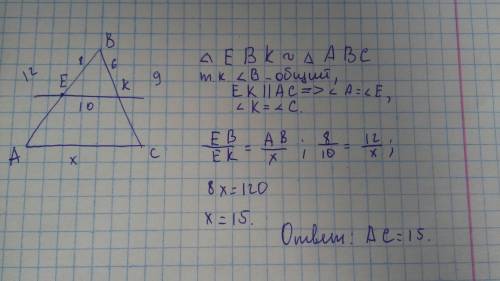 B
8 6
12 E K 9
10
A x C
△ E B K ~ △ A B C
т.к. ∠B - общий,
EK || AC => ∠A = ∠E,
∠K = ∠C.
EB/EK = AB/x ; 8/10 = 12/x ;
8x = 120
x = 15.
Ответ: AC = 15.